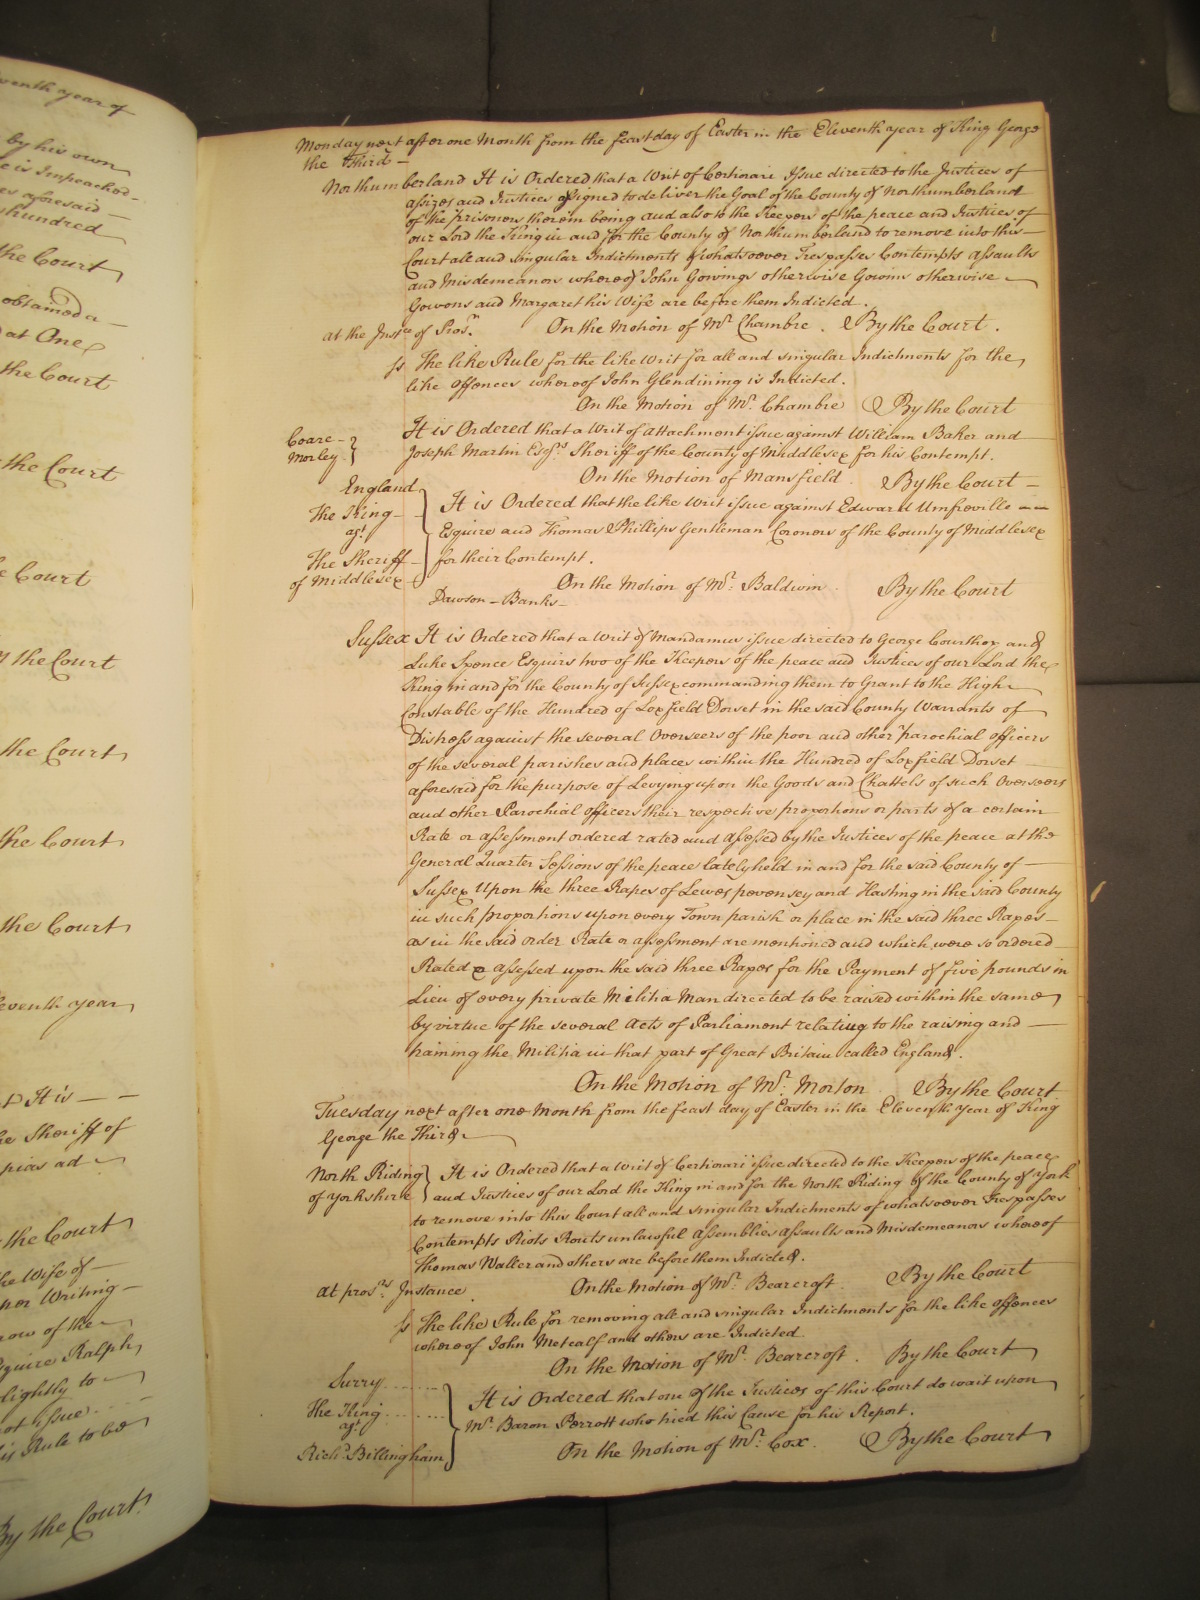 venth year of
by his own
e is Impeached
es aforesaid
hundred
the Court
obtained a
at One
the Court
the Court
e Court
the Court
the Court
the Court
the Court
eventh year
It is
he Sheriff of
pias ad
the Court
he Wife of
per Writing
now of the
squire Ralph
lightly to
not issue
is Rule to be
By the Court
Monday next after one Month from the feast day of Easter in the Eleventh year of King George
the Third
Northumberland It is Ordered that a Writ of Certiorari Issue directed to the Justices of
assizes and Justices assigned to deliver the Goal of the County of Northumberland
of the prisoners therein being and also to the Keepers of the peace and Justices of
our Lord the King in and for the County of Northumberland to remove into this
Court all and singular Indictments of whatsoever Trespasses Contempts assaults
and Misdemeanors whereof John Gowings otherwise Gowins otherwise
Gowens and Margaret his Wife are before them Indicted.
at the Instce of Prosr. On the Motion of Mr. Chambre. By the Court.
ss The like Rule for the like Writ for all and singular Indictments for the
like offences whereof John Glendining is Indicted.
On the Motion of Mr. Chambre By the Court
Coare
Morley } It is Ordered that a Writ of attachment issue against William Baker and
Joseph Martin Esqrs. Sheriff of the County of Middlesex for his Contempt.
On the Motion of Mansfield By the Court
England
The King
agt.
The Sheriff
of Middlesex
It is Ordered that the like Writ issue against Edward Umfreville
Esquire and Thomas Phillips Gentleman Coroners of the County of Middlesex
for their Contempt.
On the Motion of Mr. Baldwin By the Court
Dawson - Banks
Sussex It is Ordered that a Writ of Mandamus issue directed to George Courthop and
Luke Spence Esquirs two of the Keepers of the peace and Justices of our Lord the
King in and for the County of Sussex commanding them to Grant to the High
Constable of the Hundred of Loxfield Dorset in the said County Warrants of
Distress against the several Overseers of the poor and other parochial officers
of the several parishes and places within the Hundred of Loxfield Dorset
aforesaid for the purpose of Levying upon the Goods and Chattels of such Overseers
and other Parochial officers their respective proportions or parts of a certain
Rate or assessment ordered rated and assessed by the Justices of the peace at the
General Quarter Sessions of the peace lately held in and for the said County of
Sussex Upon the three Rapes of Lewes pevensey and Hasting in the said County
in such proportions upon every Town parish or place in the said three Rapes
as in the said order Rate or assessment are mentioned and which were so ordered
Rated or assessed upon the said three Rapes for the Payment of five pounds in
Lieu of every private Militia Man directed to be raised within the same
by virtue of the several Acts of Parliament relating to the raising and
training the Militia in that part of Great Britain called England.
On the Motion of Mr. Morton By the Court
Tuesday next after one Month from the feast day of Easter in the Eleventh Year of King
George the Third
North Riding
of Yorkshire } It is Ordered that a Writ of Certiorari issue directed to the Keepers of the peace
and Justices of our Lord the King in and for the North Riding of the County of York
to remove into this Court all and singular Indictments of whatsoever Trespasses
Contempts Riots Routs unlawful assemblies assaults and Misdemeanors whereof
Thomas Waller and others are before them Indicted.
at prosrs. Instance On the Motion of Mr. Bearcroft. By the Court
ss The like Rule for removing all and singular Indictments for the like offences
whereof John Metcalf and others are Indicted
On the Motion of Mr. Bearcroft. By the Court
Surry
The King
agt.
Richd. Billingham
It is Ordered that one of the Justices of this Court do wait upon
Mr. Baron Perrott who tried this Cause for his Report.
On the Motion of Mr. Cox. By the Court